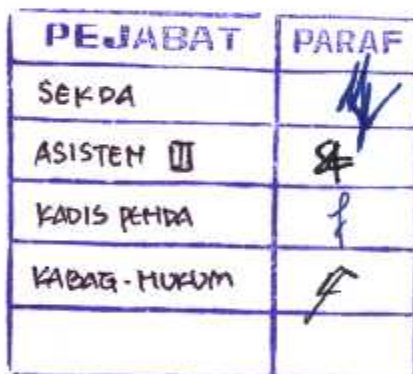 PEJABAT PARAF
SEKDA
ASISTEN III
KADIS PENDA
KABAG-HUKUM